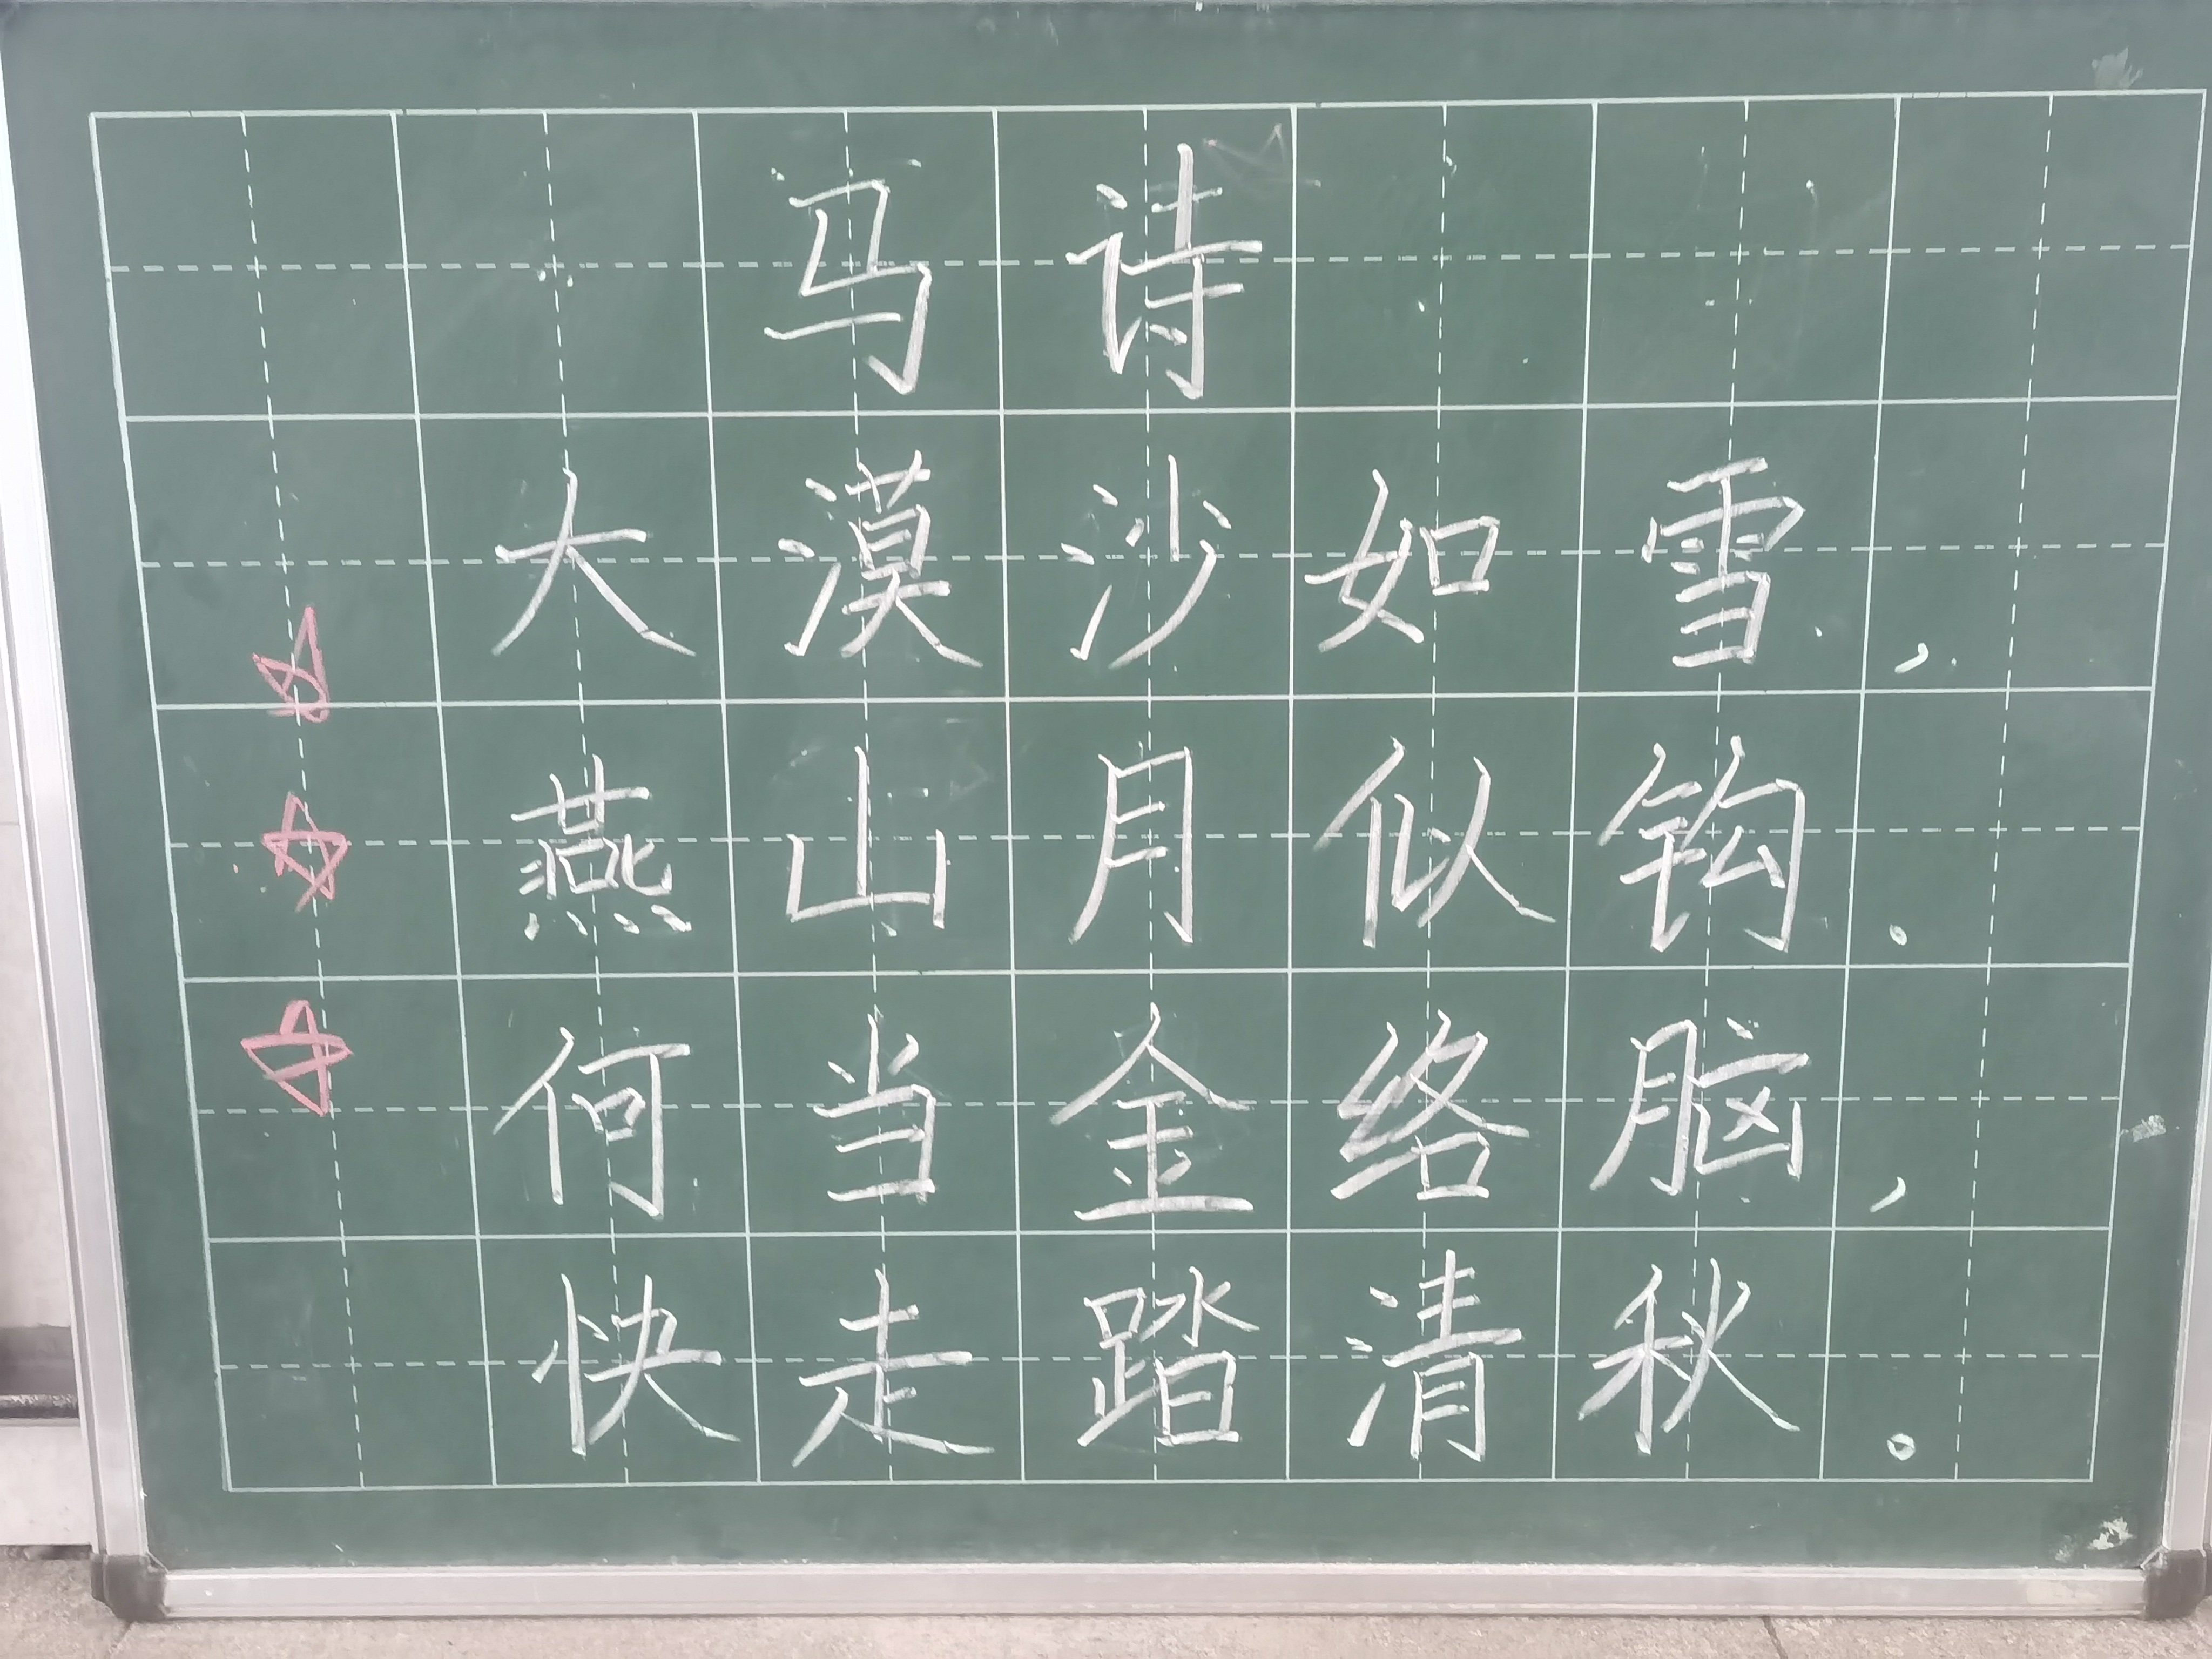 马诗
大漠沙如雪，
燕山月似钩。
何当金络脑，
快走踏清秋。